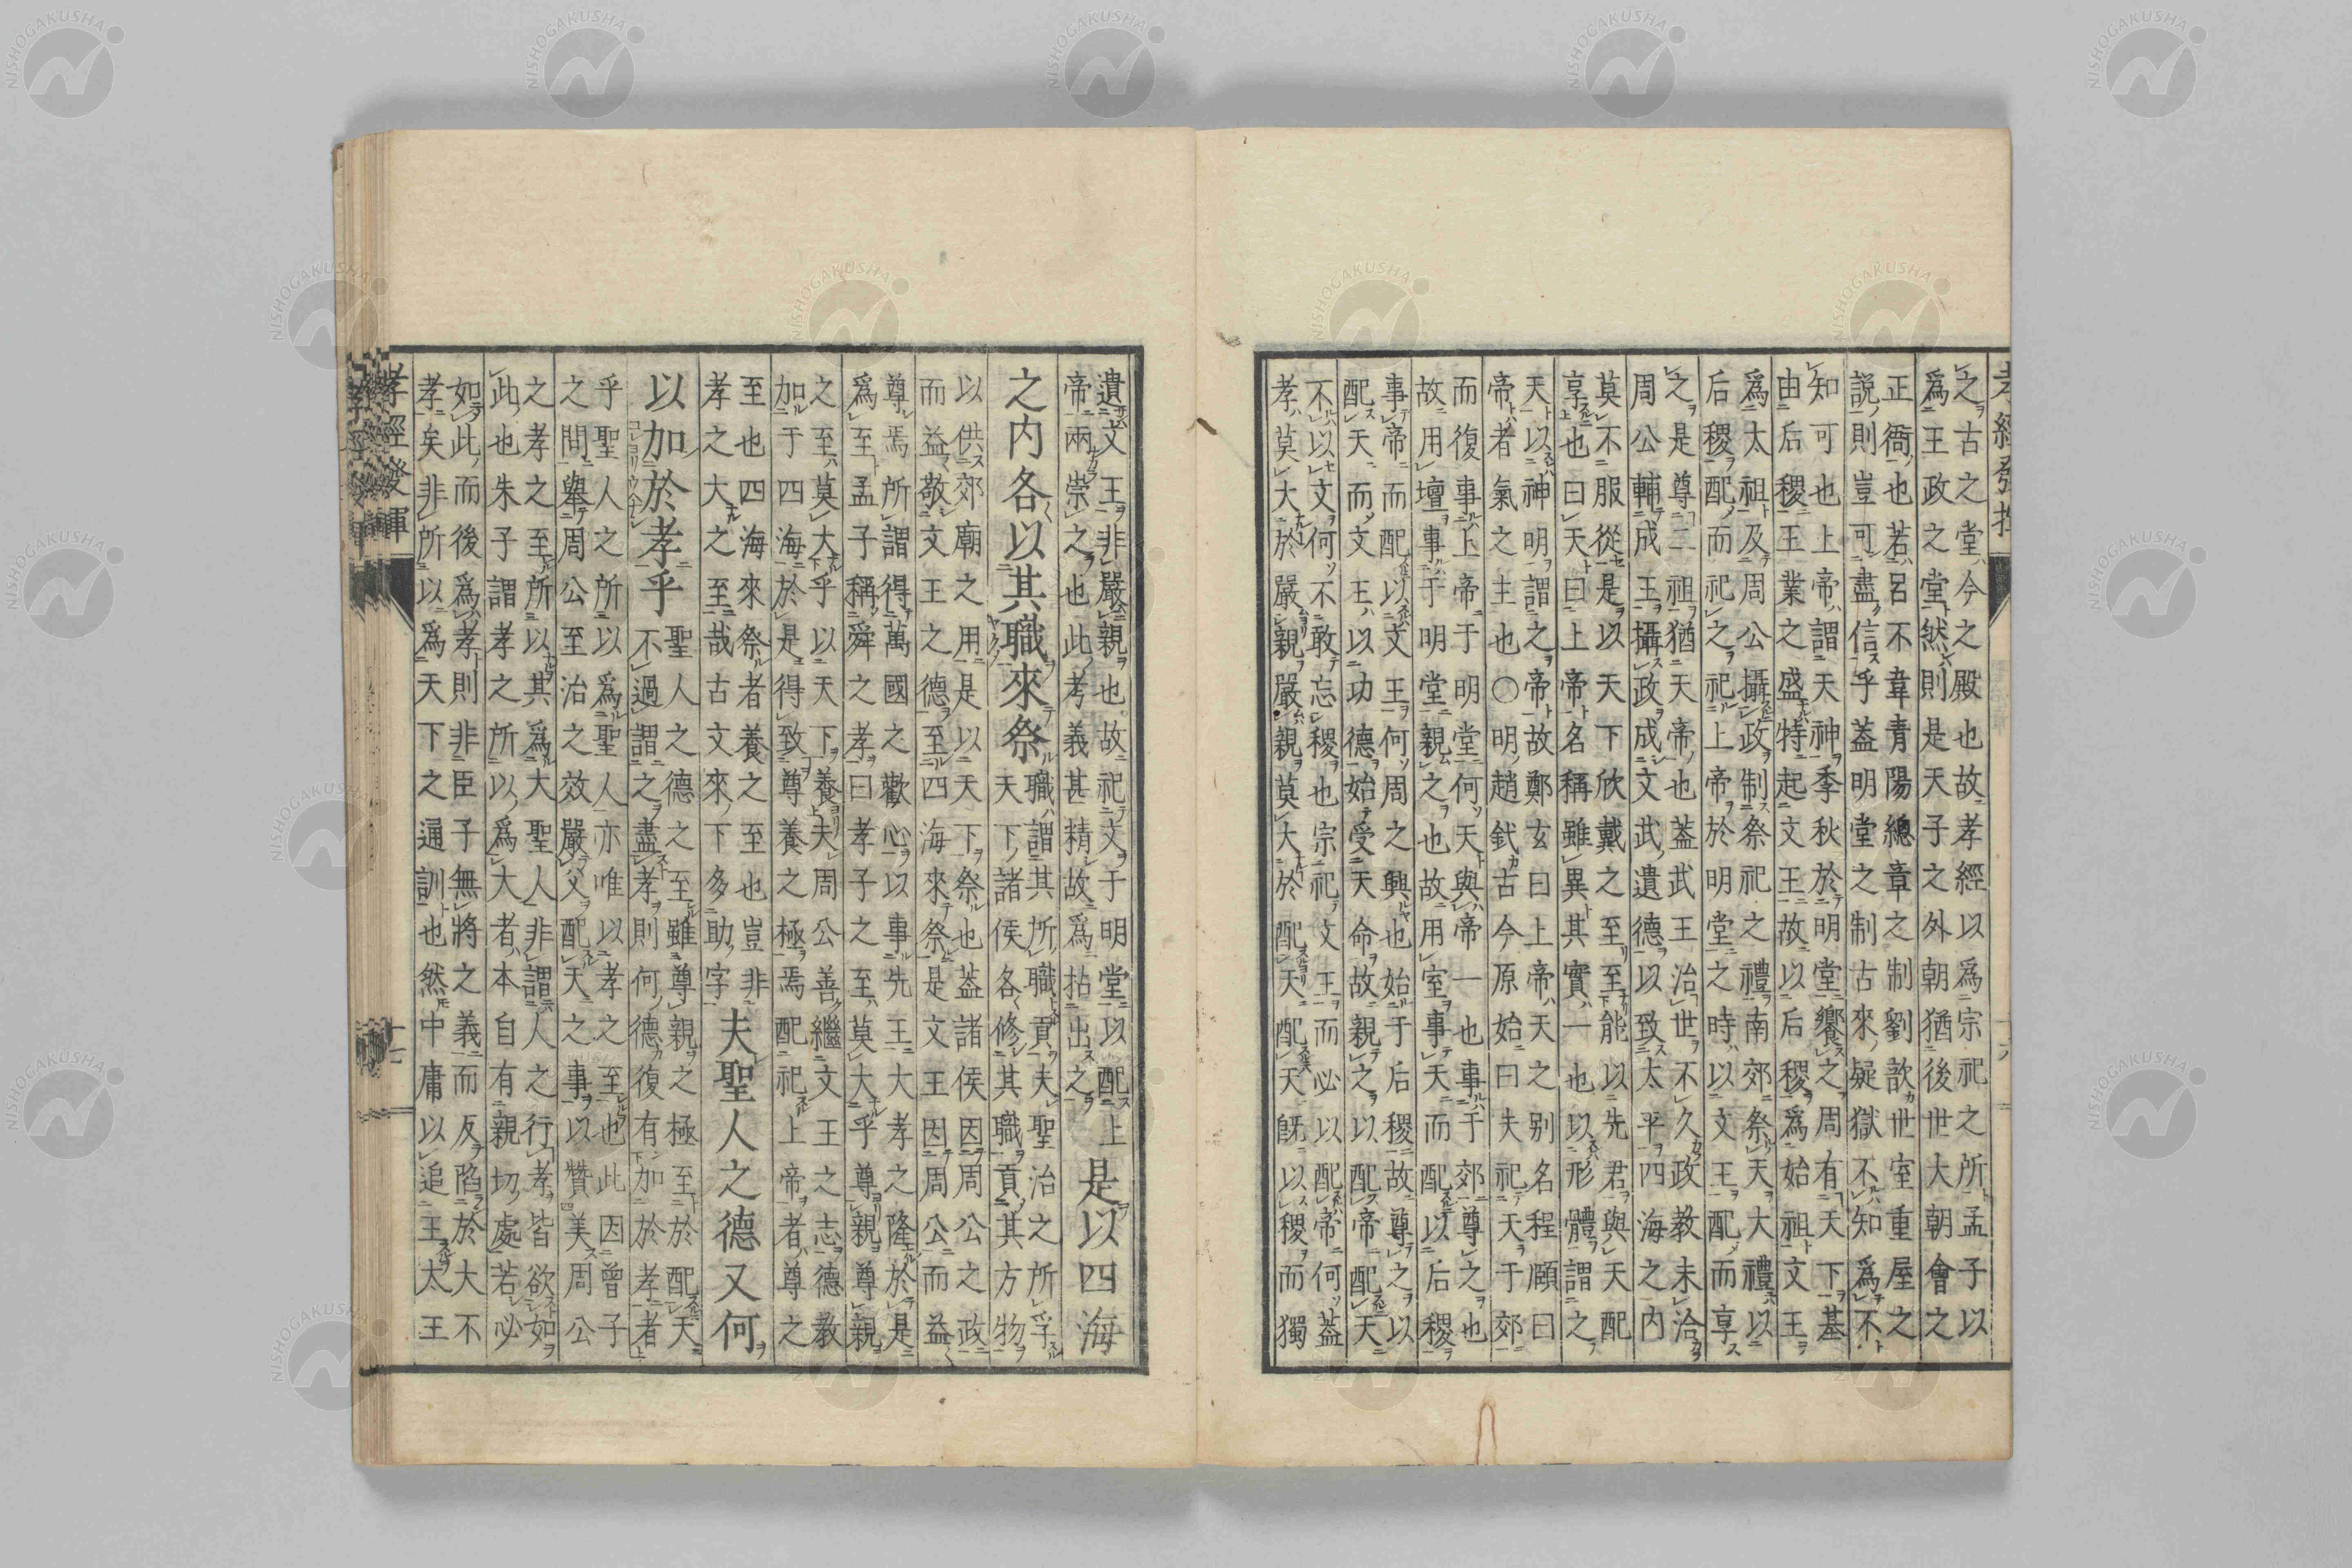 孝經發揮
之古之堂今之殿也故孝經以爲宗祀之所孟子以
爲王政之堂然則是天子之外朝猶後世大朝會之
正衙也若呂不韋青陽總章之制劉歆世室重屋之
説則豈可盡信乎葢明堂之制古來疑獄不知爲不
知可也上帝謂天神季秋於明堂饗之周有天下基
由后稷王業之盛特起文王故以后稷爲始祖文王
爲太祖及周公攝政制祭祀之禮南郊祭天大禮以
后稷配而祀之祀上帝於明堂之時以文王配而享
之是尊二祖猶天帝也葢武王治世不久政教未洽
周公輔成王攝政成文武遺德以致太平四海之内
莫不服從是以天下欣戴之至至能以先君與天配
享也曰天曰上帝名稱雖異其實一也以形體謂之
天以神明謂之帝故鄭玄曰上帝天之别名程頤曰
帝者氣之主也〇明趙釴古今原始曰夫祀天于郊
而復事上帝于明堂何天與帝一也事于郊尊之也
故用壇事于明堂親之也故用室事天而配以后稷
事帝而配以文王何周之興也始于后稷故尊之以
配天而文王以功德始受天命故親之以配帝配天
不以文何不敢忘稷也宗祀文王而必以配帝何葢
孝莫大於嚴親嚴親莫大於配天配天旣以稷而獨
遺文王非嚴親也故祀文于明堂以配上
帝兩崇之也此考義甚精故爲拈出之
是以四海
之内各以其職來祭
職謂其所職貢夫聖治之所孚
天下諸侯各修其職貢其方物
以供郊廟之用是以天下祭也葢諸侯因周公之政
而益敬文王之德至四海來祭是文王因周公而益
尊焉所謂得萬國之歡心以事先王大孝之隆於是
爲至孟子稱舜之孝曰孝子之至莫大乎尊親尊親
之至莫大乎以天下養夫周公善繼文王之志德教
加于四海於是得致尊養之極焉配祀上帝者尊之
至也四海來祭者養之至也豈非
孝之大之至哉古文來下多助字
夫聖人之德又何
以加於孝乎
聖人之德之至雖尊親之極至於配天
不過謂之盡孝則何德復有加於孝者
乎聖人之所以爲聖人亦唯以孝之至也此因曾子
之問舉周公至治之效嚴父配天之事以贊美周公
之孝之至所以其爲大聖人非謂人之行孝皆欲如
此也朱子謂孝之所以爲大者本自有親切處若必
如此而後爲孝則非臣子無將之義而反陷於大不
孝矣非所以爲天下之通訓也然中庸以追王太王
孝經發揮